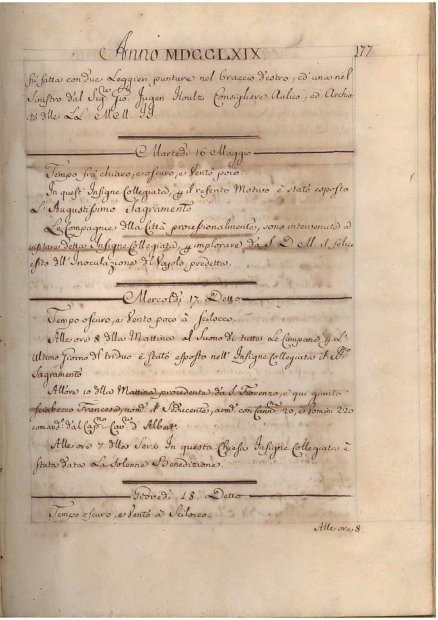 Anno MDCCLXIX.
177
fù fatta con due Leggieri punture nel braccio destro, ed' una nel
Sinistro dal Sigre Gio: Jugen Houlz Consigliere Aulico, ed Archia-
tro delle LL. M.M. II.
Martedì 16 Maggo
Tempo frà chiaro, e oscuro, e Vento poco
In quest' Insigne Collegiata, p il referito Motivo è stato esposto
L'Augustissimo Sagramento
Le Compagnie della Città processionalmente, sono intervenute a
visitare detta Insigne Collegiata, p implorare da S. D. M. S felice
esito dell'Inoculazione di Vajolo predetta.
Mercoldì 17. Detto
Tempo oscuro, e Vento poco à Scilocco
Alle ore 8 della Mattina al Suono di tutte Le Campane p l'
Ultimo Giorno del triduo è stato esposto nell' Insigne Collegiata il SSmo
Sagramento
All'ore 10 della Mattina procedente da S. Fiorenzo, è qui giunto
Sciabecco Francese, nomto il Seducente, armto con Cannni 20, e uomini 220
comandto dal Capno Cavre d' Albert
Alle ore 7 della Sera In questa Chiesa Insigne Collegiata è
stata data La Solenne Benedizione.
Giovedì 18. Detto
Tempo oscuro, e Vento à Scilocco
Alle ore 8.